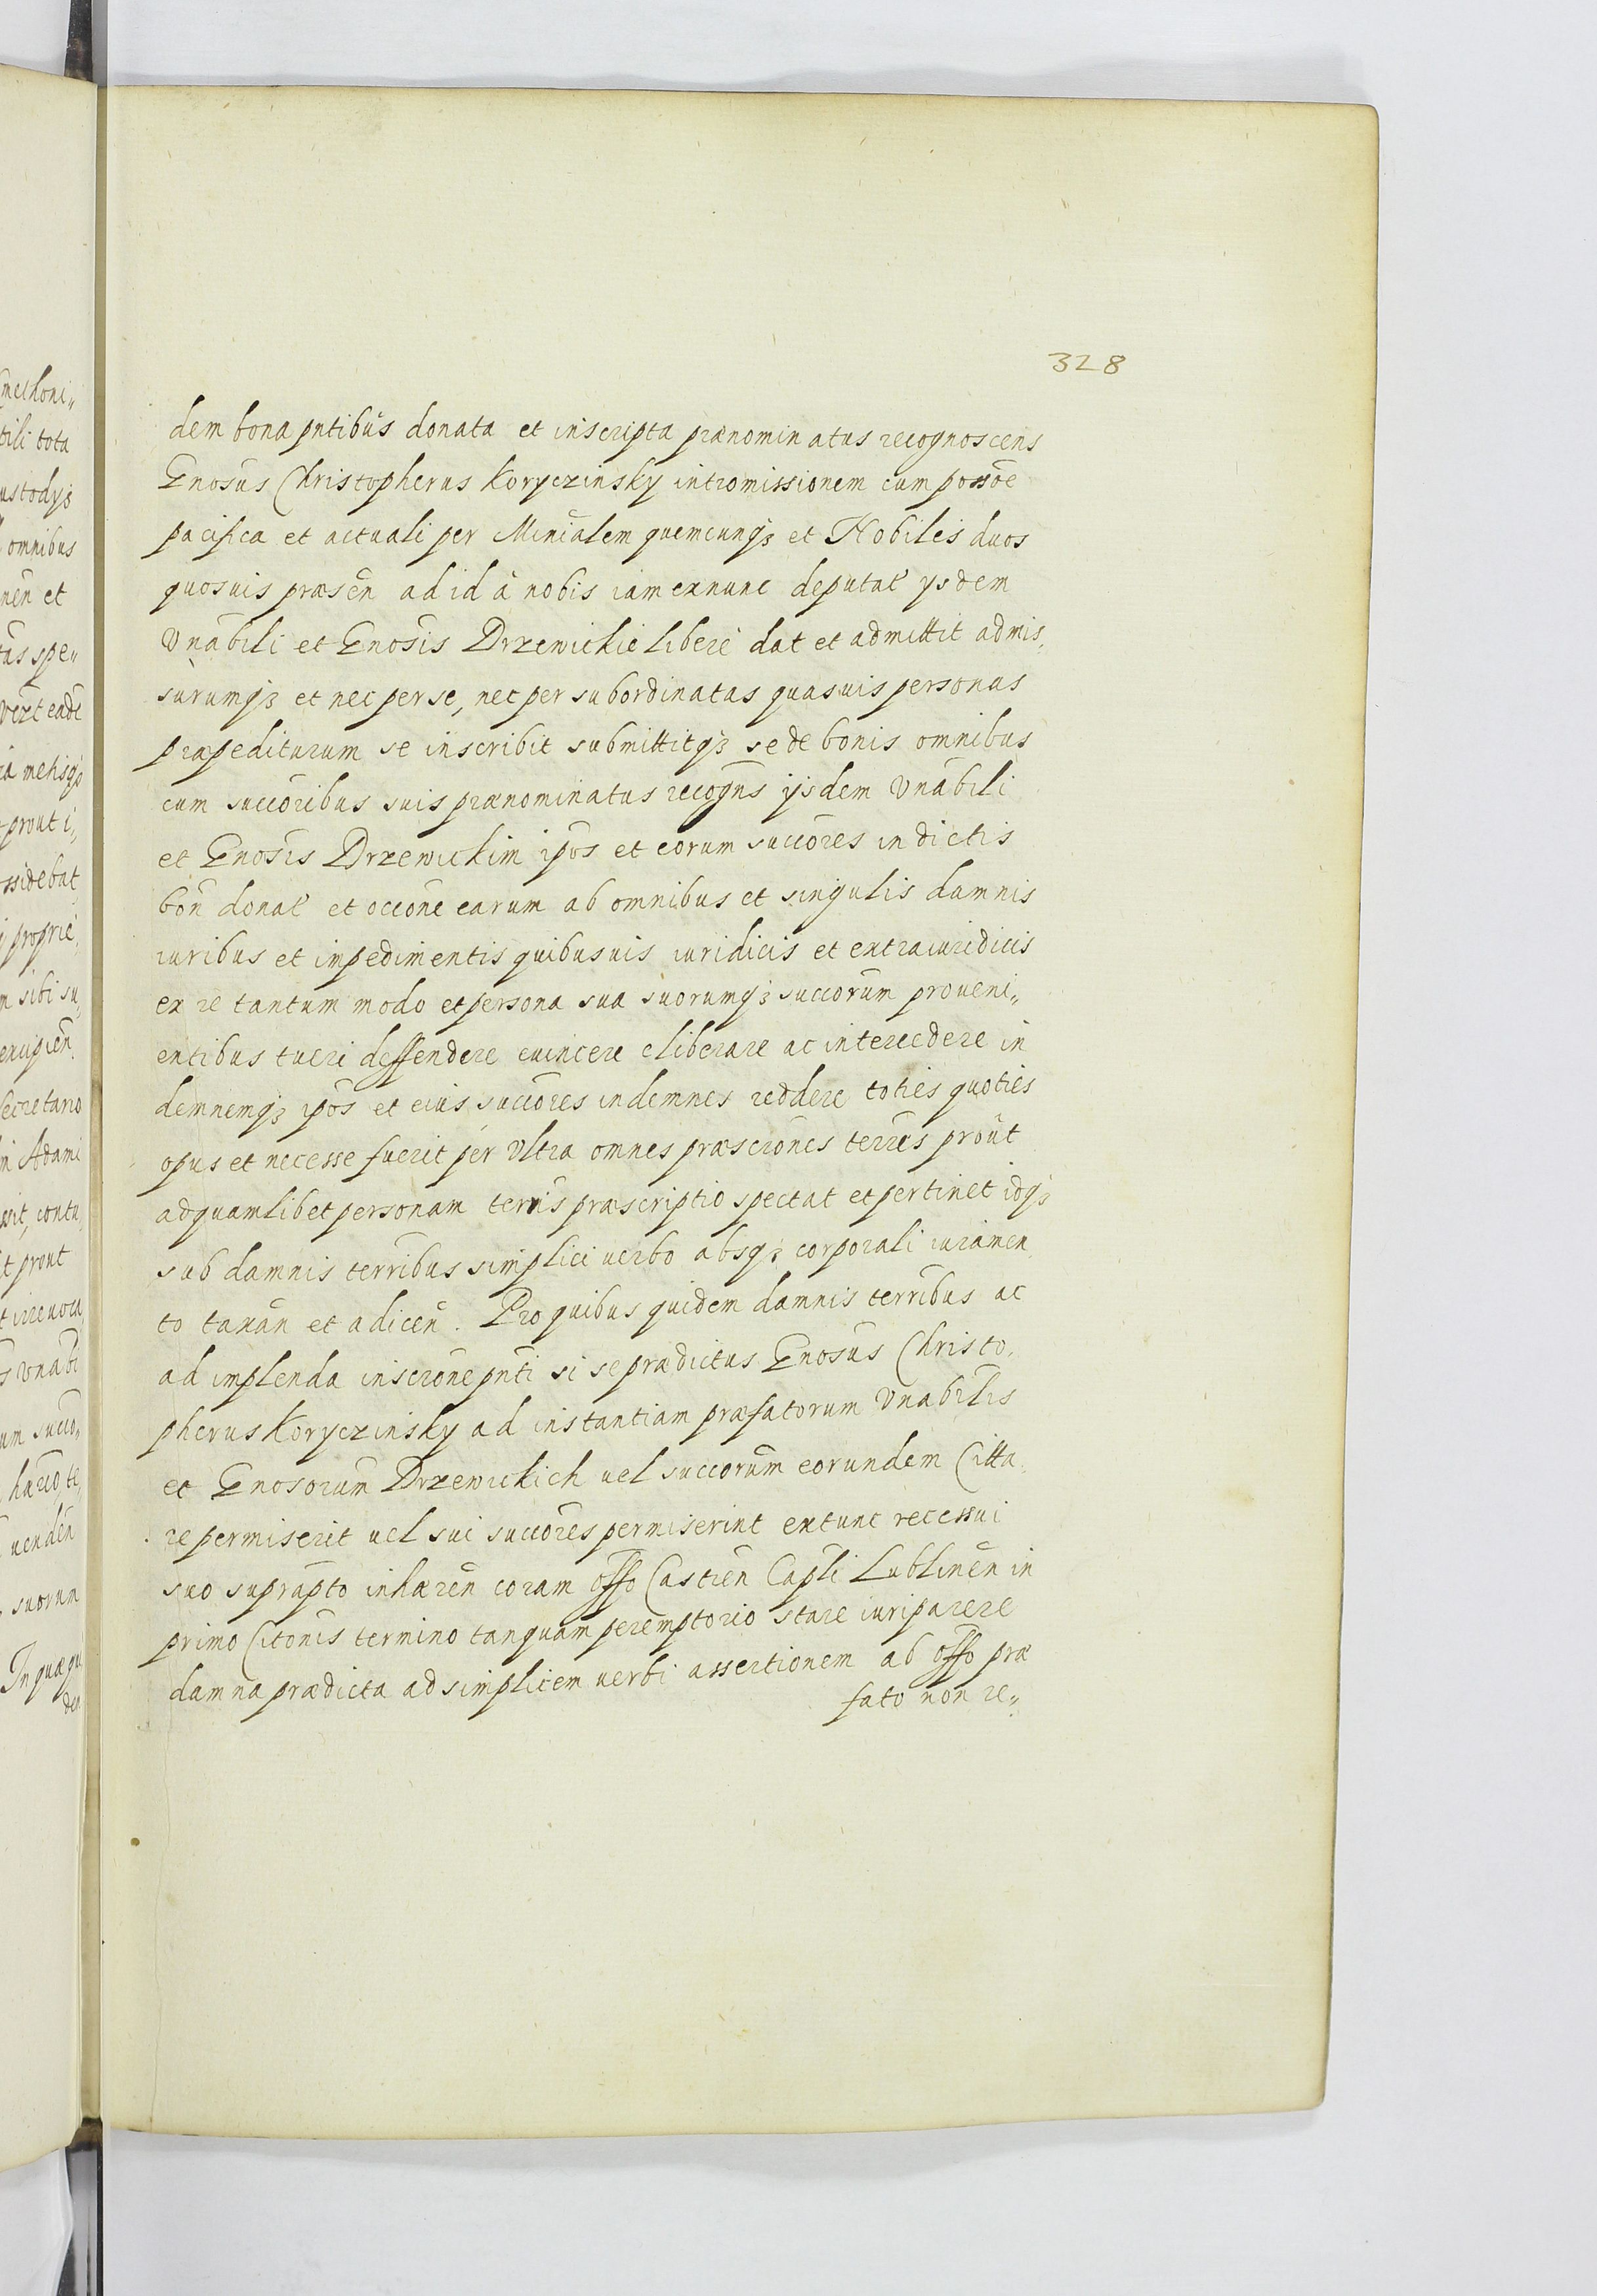 328
dem bona pn̄tibus donata et inscripta prænominatus recognoscens
Gnosus Christopherus Koryczinsky intromissionem cum possōe
pacifica et actuali per Miniālem quemcunqȝ et Nobiles duos
quosuis præsēn ad id à nobis iam exnunc deputat̄ ysdem
Vnābili et Gnosis Drzewickie liberè dat et admittit admis,
surumqȝ et nec per se, nec per subordinatas quasuis personas
præpediturum se inscribit submittitqȝ se de bonis omnibus
cum succōribus suis prænominatus recogn̄s ijsdem Vnābili
et Gnosis Drzewickim ipōs et eorum succōres in dictis
bon̄ donat̄ et occōne earum ab omnibus et singulis damnis
iuribus et impedimentis quibusuis iuridicis et extraiuridicis
ex re tantum modo et persona sua suorumqȝ succorūm proueni„
entibus tueri deffendere euincere eliberare ac intercedere in
demnemqȝ ipōs et eius succōres indemnes reddere toties quoties
opus et necesse fuerit per Vltra omnes præscrōnes terrēs proūt
ad quamlibet personam terrn̄s præscriptio spectat et pertinet idqȝ
sub damnis terrībus simplici uerbo absqȝ corporali iuramen,
to taxān et adicēn. Pro quibus quidem damnis terrībus ac
ad implenda inscrōne pn̄ti si se prædictus Gnosus Christo,
pherus Koryczinsky ad instantiam præfatorum Vnabīlis
et Gnosorum Drzewickich uel succorūm eorundem Citta,
re permiserit uel sui succōres permiserint extunc recessui
suo suprapto inhærēn coram offō Castrēn Capłi Lublinēn in
primo Citōnis termino tanquam peremptorio stare iuri parere
damna prædicta ad simplicem uerbi assertionem ab offō præ
fato non re„